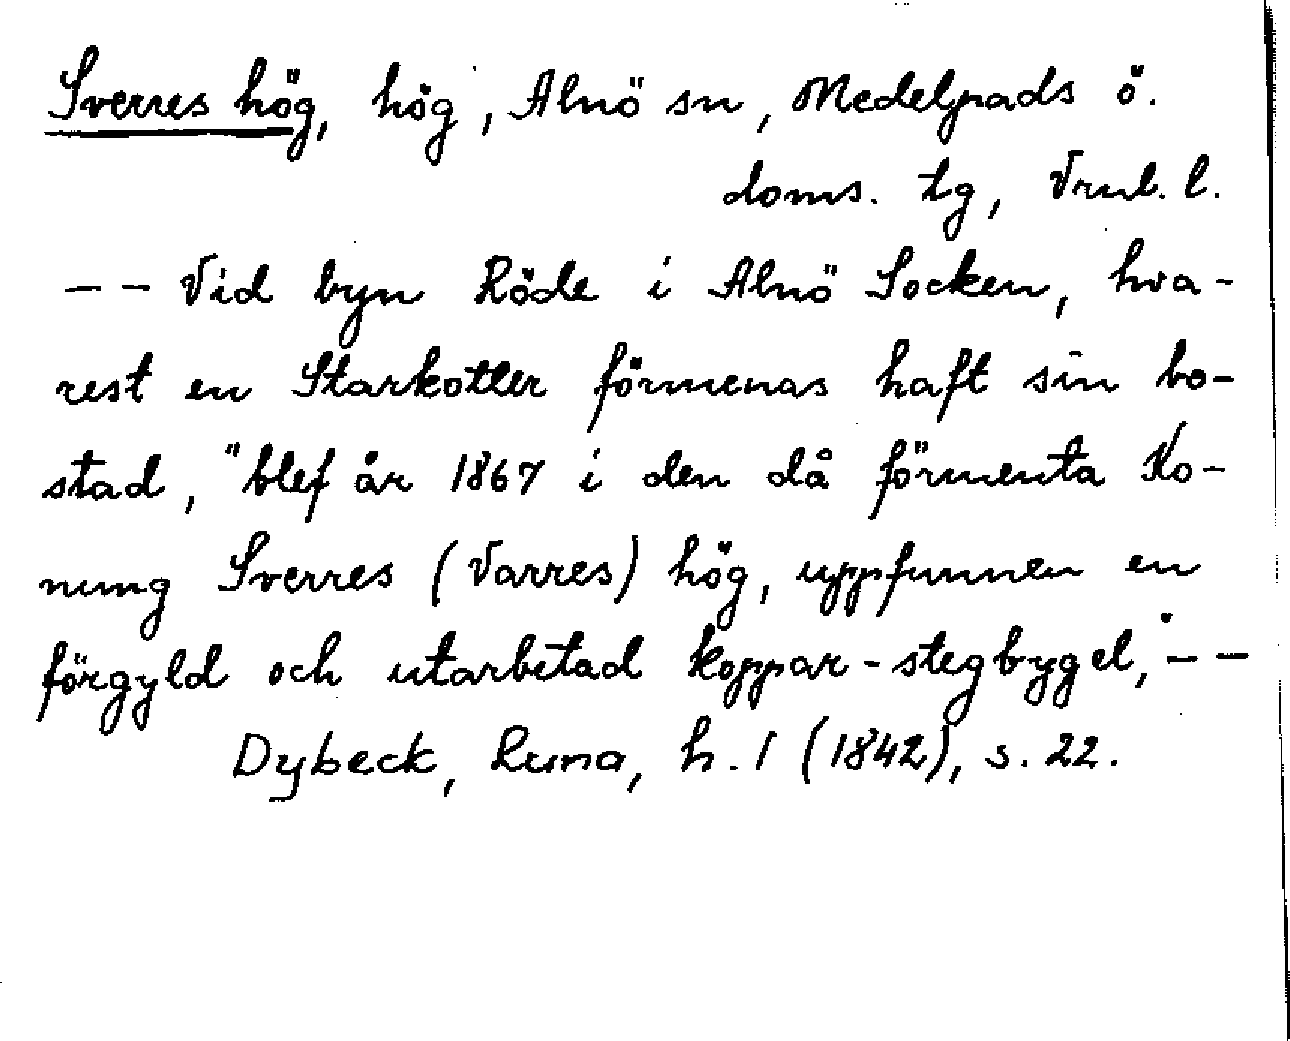 Sverres hög, hög, Alnö sn, Medelpads ö.
doms. tg, Vrnl. l.
-- Vid byn Röde i Alnö Socken, hva-
rest en Starkotter förmenas haft sin bo-
stad, "blef år 1867 i den då förmenta Ko-
nung Sverres (Varres) hög, uppfunnen en
förgyld och utarbetad koppar-stegbygel," --
Dybeck, Runa, h. 1 (1842), s. 22.